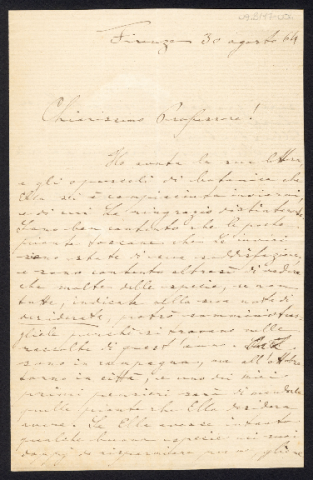 Firenze 30 agosto 64
Chiarissimo Professore!
Ho avuta la sua lettera
e gli opuscoli di botanica che
Ella si è compiaciuta inviarmi,
e di cui La ringrazio distintamente.
Sono ben contento che le poche
piante toscane che Le inviai
siano state di sua soddisfazione,
e sono contento altresì di vedere
che molte delle specie, se non
tutte, indicate nella sua nota di
desiderate, potrò somministrar-
gliele purché si trovino nelle
raccolte di quest'anno.
sono in campagna, ma all'ottobre
torno in città, e uno dei miei
primi pensieri sarà di mandarle
quelle piante che Ella desidera
avere. Se Ella avesse intanto
qualche buona specie nei suoi
doppi da risparmiare per me, gliene